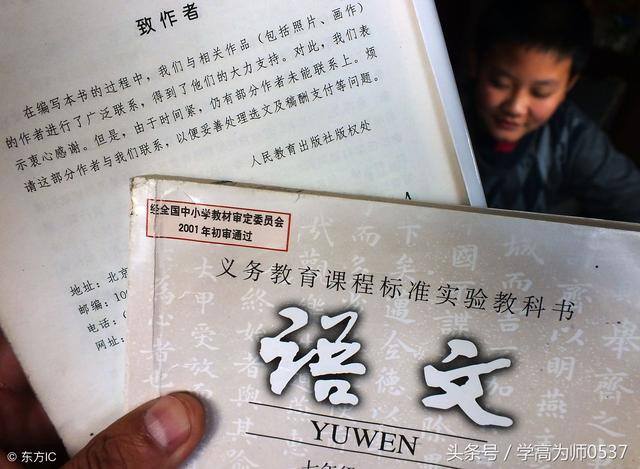 致作者
在编写本书的过程中，我们与相关作品（包括照片、画作）
的作者进行了广泛联系，得到了他们的大力支持。对此，我们表
示衷心感谢。但是，由于时间紧，仍有部分作者未能联系上。烦
请这部分作者与我们联系，以便妥善处理选文及稿酬支付等问题。
人民教育出版社版权处
地址：北京
邮编：10
电话：
网址：
经全国中小学教材审定委员会
2001年初审通过
义务教育课程标准实验教科书
语文
YUWEN
七年级
© 东方IC
头条号 / 学高为师0537